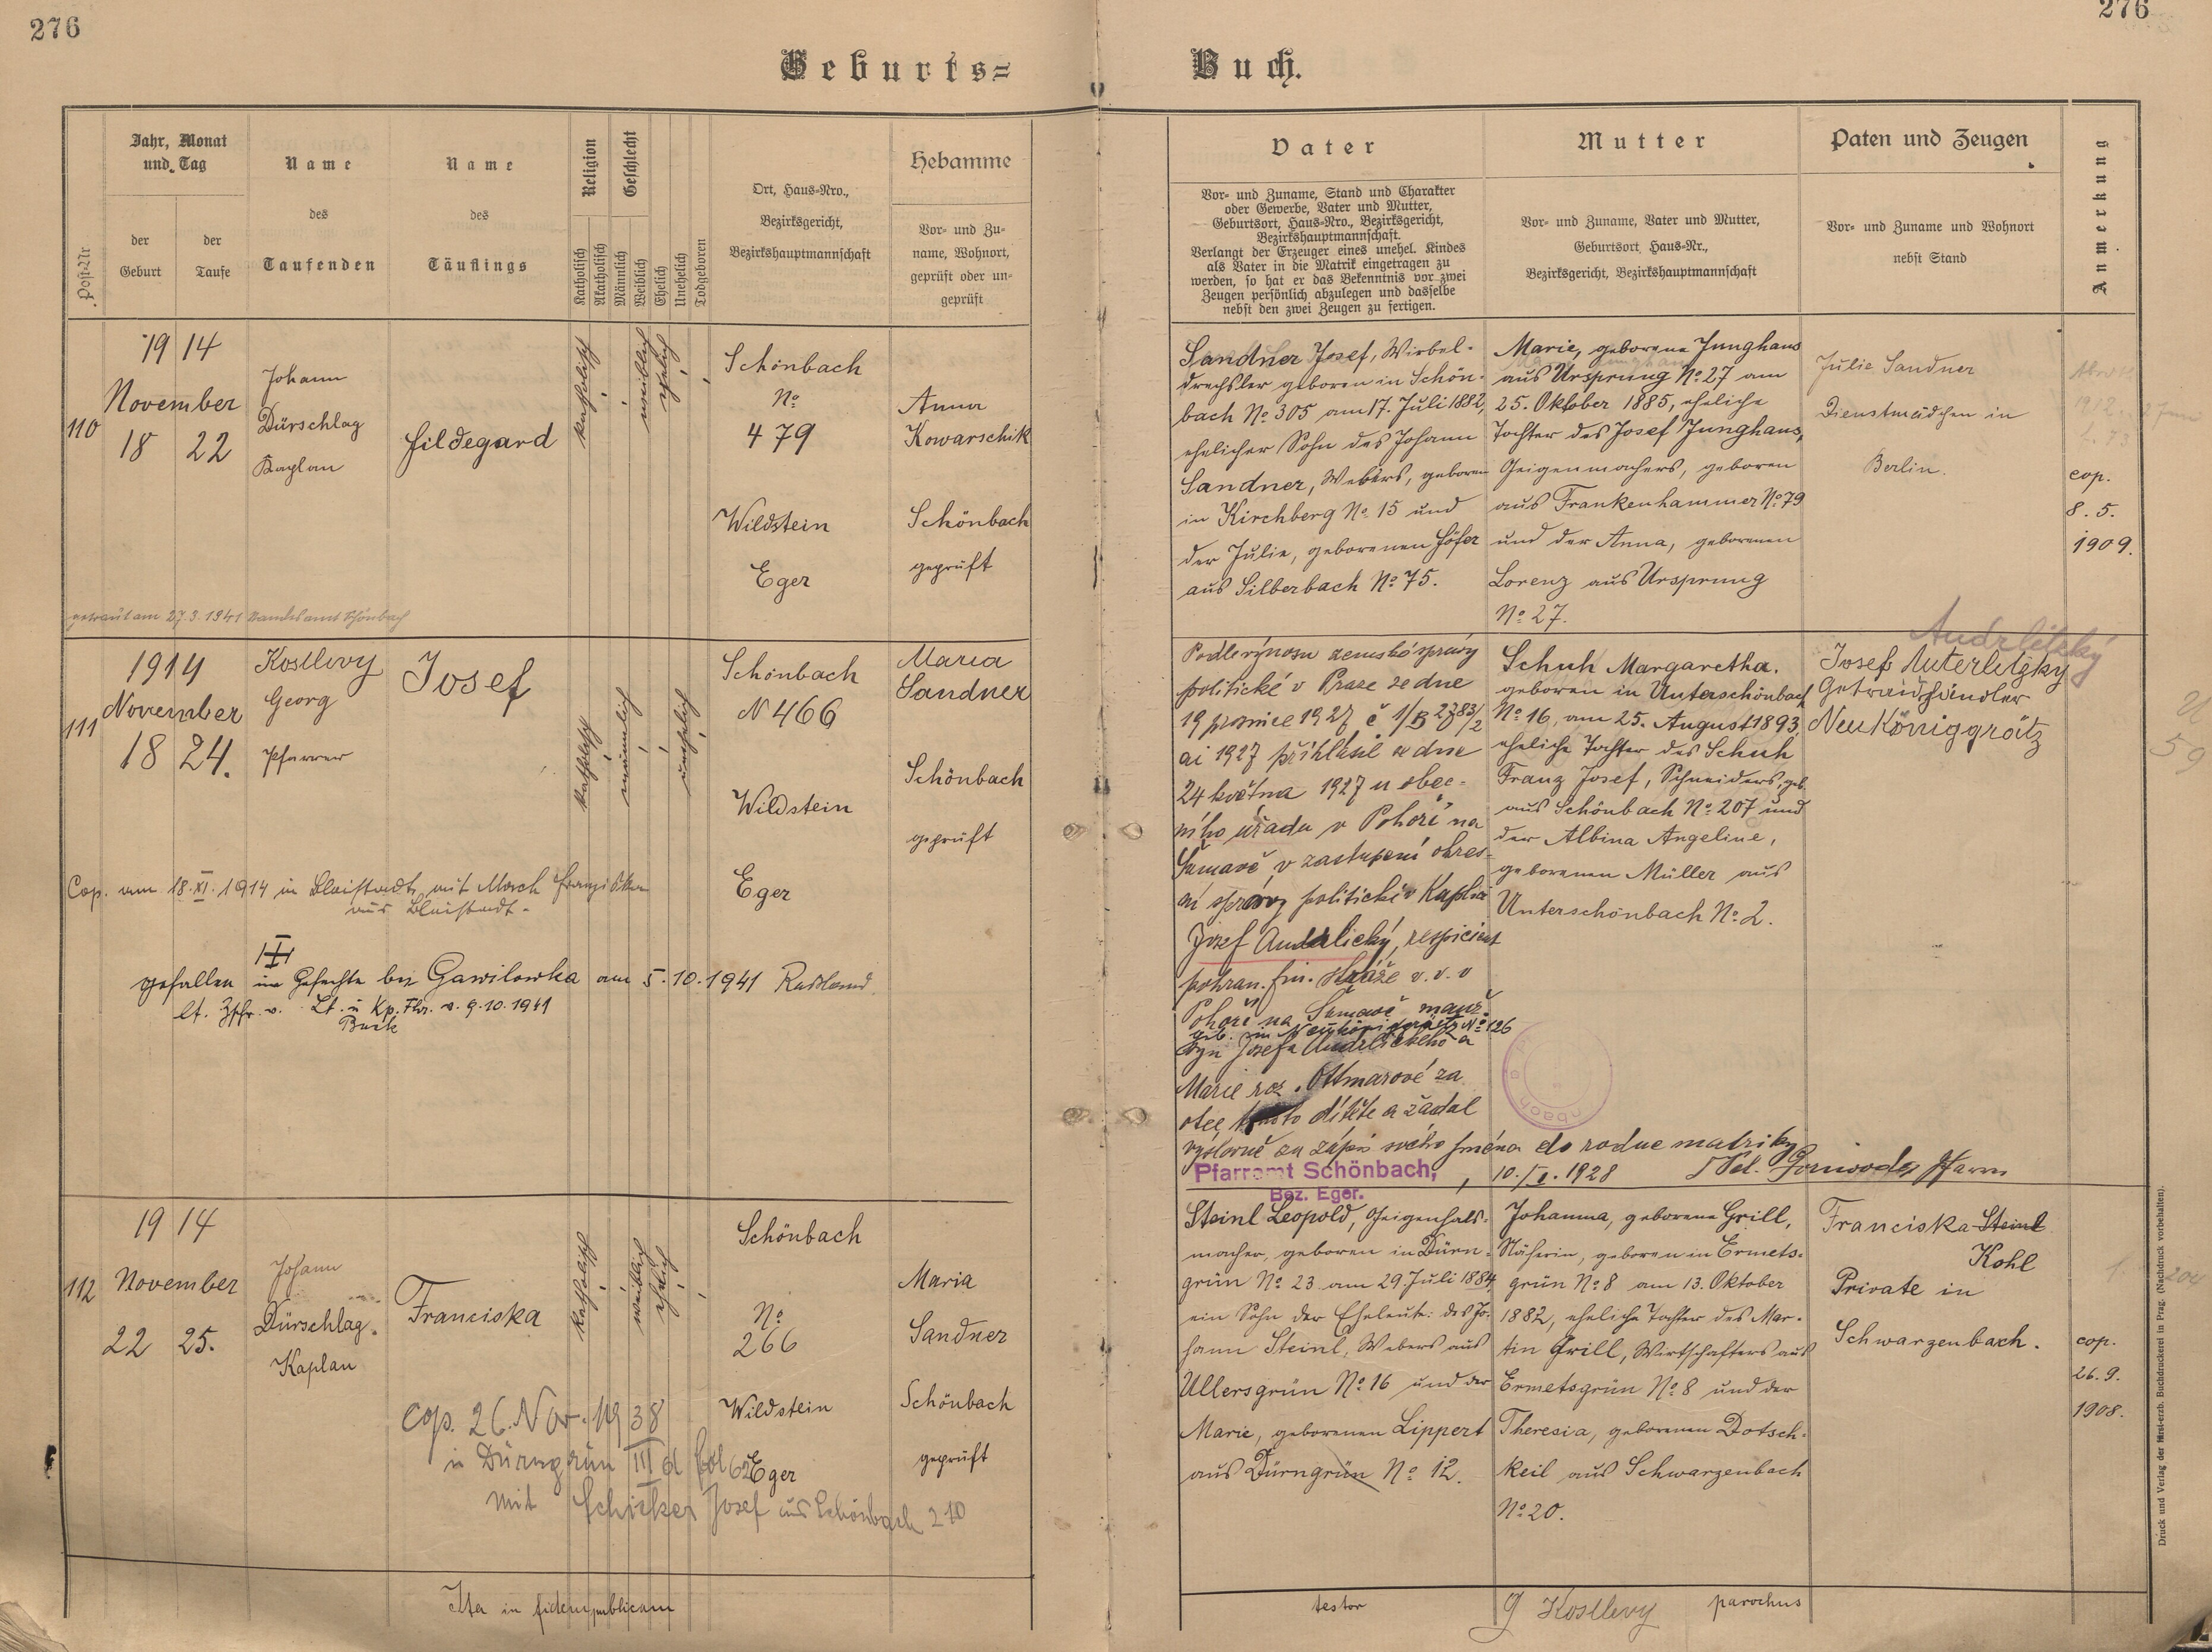 276
276
Geburts=
Buch.
Post-Nr
Jahr, Monat
und Tag
der
Geburt
der
Taufe
Name
des
Taufenden
Name
des
Täuflings
Religion
Katholisch
Akatholisch
Geschlecht
Männlich
Weiblich
Ehelich
Unehelich
Todgeboren
Ort, Haus-Nro.,
Bezirksgericht,
Bezirkshauptmannschaft
Hebamme
Vor- und Zu-
name, Wohnort,
geprüft oder un-
geprüft
Vater
Vor- und Zuname, Stand und Charakter
oder Gewerbe, Vater und Mutter,
Geburtsort, Haus-Nro., Bezirksgericht,
Bezirkshauptmannschaft.
Verlangt der Erzeuger eines unehel. Kindes
als Vater in die Matrik eingetragen zu
werden, so hat er das Bekenntnis vor zwei
Zeugen persönlich abzulegen und dasselbe
nebst den zwei Zeugen zu fertigen.
Mutter
Vor- und Zuname, Vater und Mutter,
Geburtsort, Haus-Nr.,
Bezirksgericht, Bezirkshauptmannschaft
Paten und Zeugen
Vor- und Zuname und Wohnort
nebst Stand
Anmerkung
110
1914
November
18 22
Johann
Dürschlag
Kaplan
Hildegard
katholisch
weiblich
ehelich
Schönbach
No
479
Wildstein
Eger
Anna
Kowarschik
Schönbach
geprüft
getraut am 27.3.1941 Standesamt Schönbach
Sandner Josef, Wirbel-
drechsler geboren in Schön-
bach No 305 am 17. Juli 1882,
ehelicher Sohn des Johann
Sandner, Webers, geboren
in Kirchberg No 15 und
der Julie, geborenen Höfer
aus Silberbach No 75.
Marie, geborene Junghans
aus Ursprung No 27 am
25. Oktober 1885, eheliche
Tochter des Josef Junghans,
Geigenmachers, geboren
aus Frankenhammer No 79
und der Anna, geborenen
Lorenz aus Ursprung
No 27.
Julie Sandner
Dienstmädchen in
Berlin.
cop.
8. 5.
1909.
111
1914
November
18 24.
Kosllevy
Georg
Pfarrer
Josef
katholisch
männlich
unehelich
Schönbach
N 466
Wildstein
Eger
Maria
Sandner
Schönbach
geprüft
Cop. am 18.XI.1914 in Bleistadt mit March Franziska
aus Bleistadt.
gefallen im Gefechte bei Gawilowka am 5.10.1941 Russland.
lt. Zschr. v. Lt. u Kp. Fhr. v. 9.10.1941
Buck
Podle výnosu zemské správy
politické v Praze ze dne
19 prosince 1927 č 1/B 2783/2
ai 1927 přihlásil se dne
24 května 1927 u obec-
ního úřadu v Pohoří na
Šumavě v zastupení okres-
ní správy politické v Kaplici
Josef Andrlický, respicient
pohran. fin. stráže v. v. v
Pohoří na Šumavě manž.
geb. in Neuköniggrätz No 126
syn Josefa Andrlického a
Marie roz. Ottmarové za
otce tohoto dítěte a žádal
výslovně za zápis svého jména do rodne matriky
Pfarramt Schönbach,
Bez. Eger.
10./I. 1928
Schuh Margaretha.
geboren in Unterschönbach
No 16, am 25. August 1893,
eheliche Tochter des Schuh
Franz Josef, Schneiders, geb.
aus Schönbach No 207 und
der Albina Angeline,
geborenen Müller aus
Unterschönbach No 2.
Josef Auterletzky
Getreidhändler
Neu Königgrätz
112
1914
November
22 25.
Johann
Dürschlag.
Kaplan
Franciska
katholisch
weiblich
ehelich
Schönbach
No
266
Wildstein
Eger
Maria
Sandner
Schönbach
geprüft
cop. 26. Nov. 1938
in Dürngrün III d fol 62
mit Schicker Josef aus Schönbach 210
Steinl Leopold, Geigenhals-
macher, geboren in Dürn-
grün No 23 am 29. Juli 1884,
ein Sohn der Eheleute: des Jo-
hann Steinl, Webers aus
Ullersgrün No 16 und der
Marie, geborenen Lippert
aus Dürngrün No 12.
Johanna, geborene Grill,
Näherin, geboren in Ermets-
grün No 8 am 13. Oktober
1882, eheliche Tochter des Mar-
tin Grill, Wirtschafters aus
Ermetsgrün No 8 und der
Theresia, geborenen Dotsch-
keil aus Schwarzenbach
No 20.
Franciska Steinl
Kohl
Private in
Schwarzenbach.
cop.
26. 9.
1908.
Ita in fidem publicam
testor
G Kosllevy
parochus
Druck und Verlag der fürst-erzb. Buchdruckerei in Prag. (Nachdruck vorbehalten).